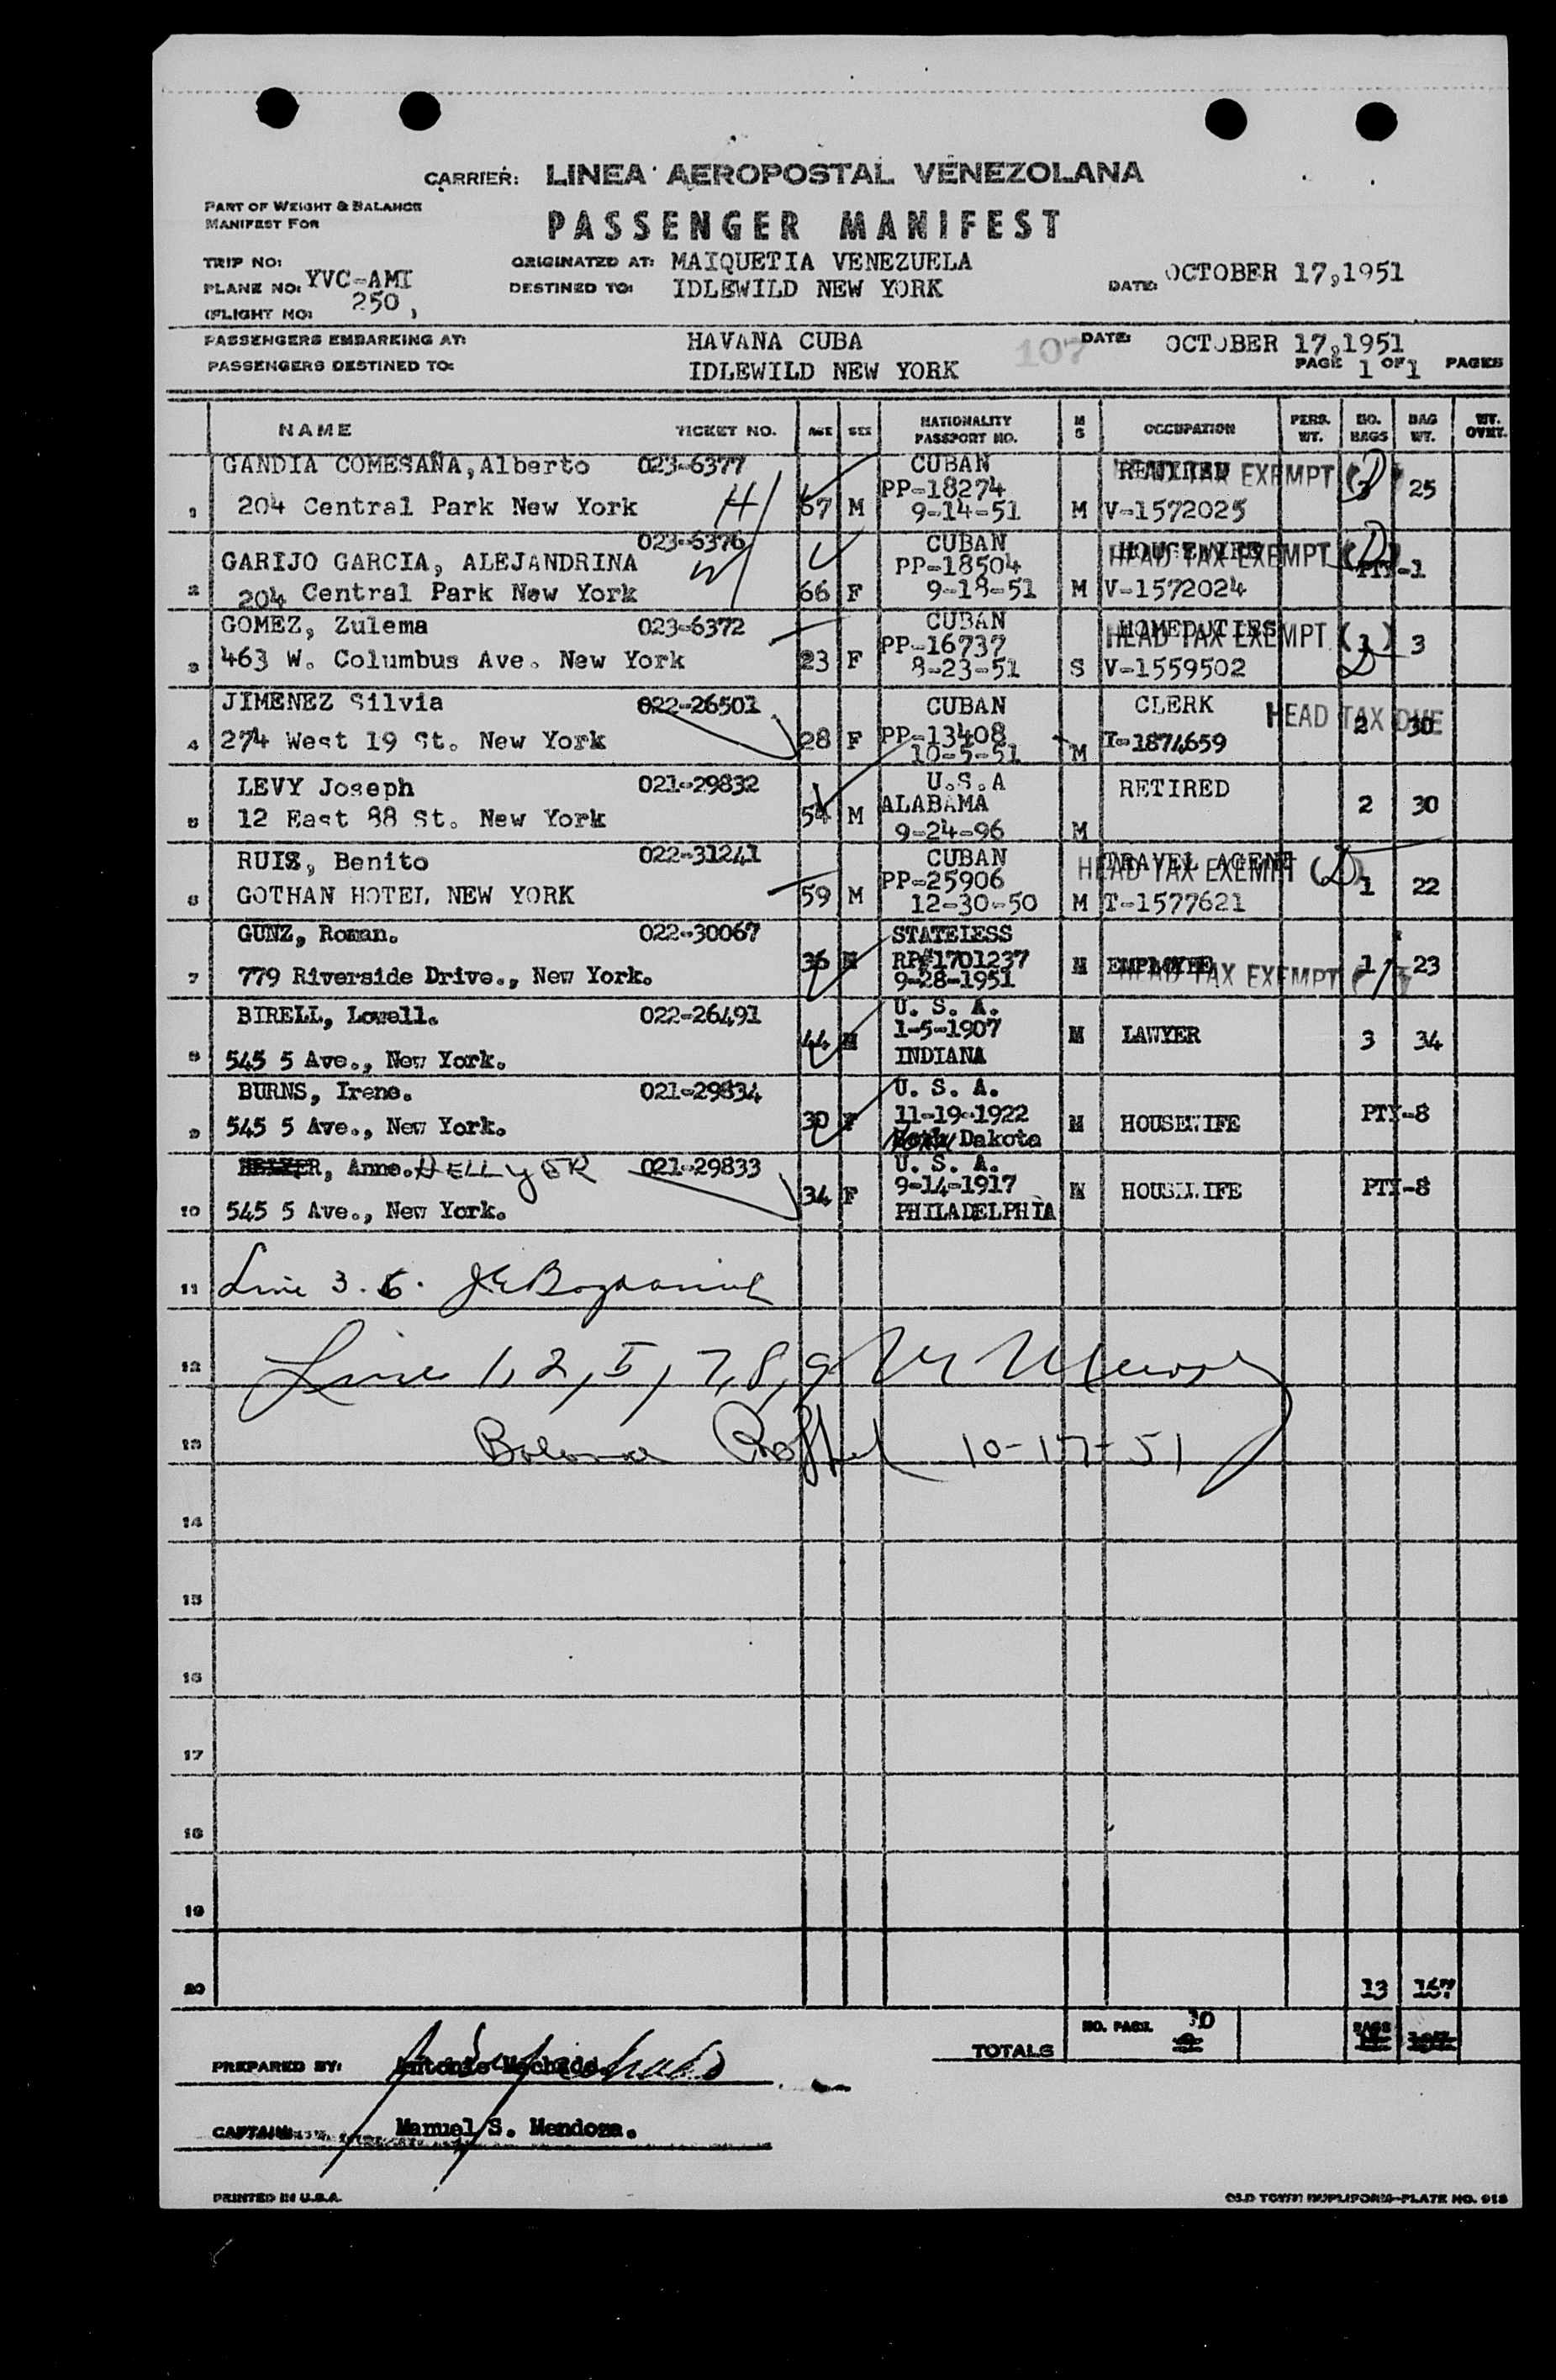 CARRIER: LINEA AEROPOSTAL VENEZOLANA
PART OF WEIGHT & BALANCE
MANIFEST FOR
PASSENGER MANIFEST
TRIP NO:
PLANE NO: YVC-AMI
(FLIGHT NO: 250 )
ORIGINATED AT: MAIQUETIA VENEZUELA
DESTINED TO: IDLEWILD NEW YORK
DATE: OCTOBER 17,1951
PASSENGERS EMBARKING AT: HAVANA CUBA
DATE: OCTOBER 17,1951
107
PASSENGERS DESTINED TO: IDLEWILD NEW YORK
PAGE 1 OF 1 PAGES
NAME TICKET NO. AGE SEX NATIONALITY PASSPORT NO. M S OCCUPATION PERS. WT. NO. BAGS BAG WT. WT. OVWT.
GANDIA COMESAÑA, Alberto 023-6377 CUBAN HEAD TAX EXEMPT
PP-18274
1 204 Central Park New York H 67 M 9-14-51 M V-1572025 25
023-6376 CUBAN HOUSEWIFE HEAD TAX EXEMPT (D)
GARIJO GARCIA, ALEJANDRINA W PP-18504 PTY-1
2 204 Central Park New York 66 F 9-18-51 M V-1572024
GOMEZ, Zulema 023-6372 CUBAN HOMEDUTIES HEAD TAX EXEMPT
PP-16737 1 3
3 463 W. Columbus Ave. New York 23 F 8-23-51 S V-1559502
JIMENEZ Silvia 022-26501 CUBAN CLERK HEAD TAX DUE 2 30
4 274 West 19 St. New York 28 F PP-13408 T-1874659
10-5-51 M
LEVY Joseph 021-29832 U.S.A RETIRED
5 12 East 88 St. New York 54 M ALABAMA 2 30
9-24-96 M
RUIZ, Benito 022-31241 CUBAN TRAVEL AGENT HEAD TAX EXEMPT (D)
PP-25906 1 22
6 GOTHAN HOTEL NEW YORK 59 M 12-30-50 M T-1577621
GUNZ, Roman. 022-30067 STATELESS
7 779 Riverside Drive., New York. 36 M RP#1701237 M EMPLOYEE HEAD TAX EXEMPT 1 23
9-28-1951
BIRELL, Lowell. 022-26491 U. S. A.
44 M 1-5-1907 M LAWYER 3 34
8 545 5 Ave., New York. INDIANA
BURNS, Irene. 021-29834 U. S. A.
9 545 5 Ave., New York. 30 F 11-19-1922 M HOUSEWIFE PTY-8
Dakota
R, Anne. HELLYER 021-29833 U. S. A.
34 F 9-14-1917 M HOUSEWIFE PTY-8
10 545 5 Ave., New York. PHILADELPHIA
11 Line 3. 6.
12 Line 1, 2, 5, 7, 8, 9
13 10-17-51
14
15
16
17
18
19
20 13 167
TOTALS NO. PASS. 10 BAGS
PREPARED BY: Antonio Machado.
CAPTAIN: Manuel S. Mendoza.
PRINTED IN U.S.A. OLD TOWN DUPLIFORM-PLATE NO. 918